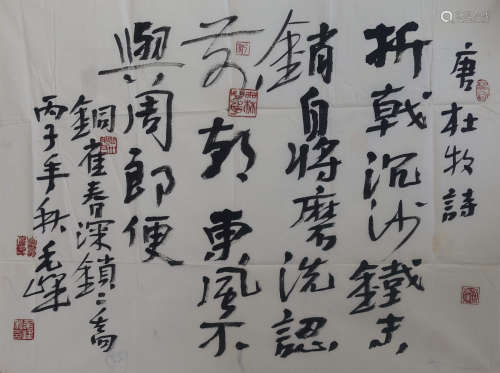 唐杜牧詩
折戟沉沙鐵未
銷自將磨洗認
前朝東風不
與周郎便
銅雀春深鎖二喬
丙子年秋毛嶸